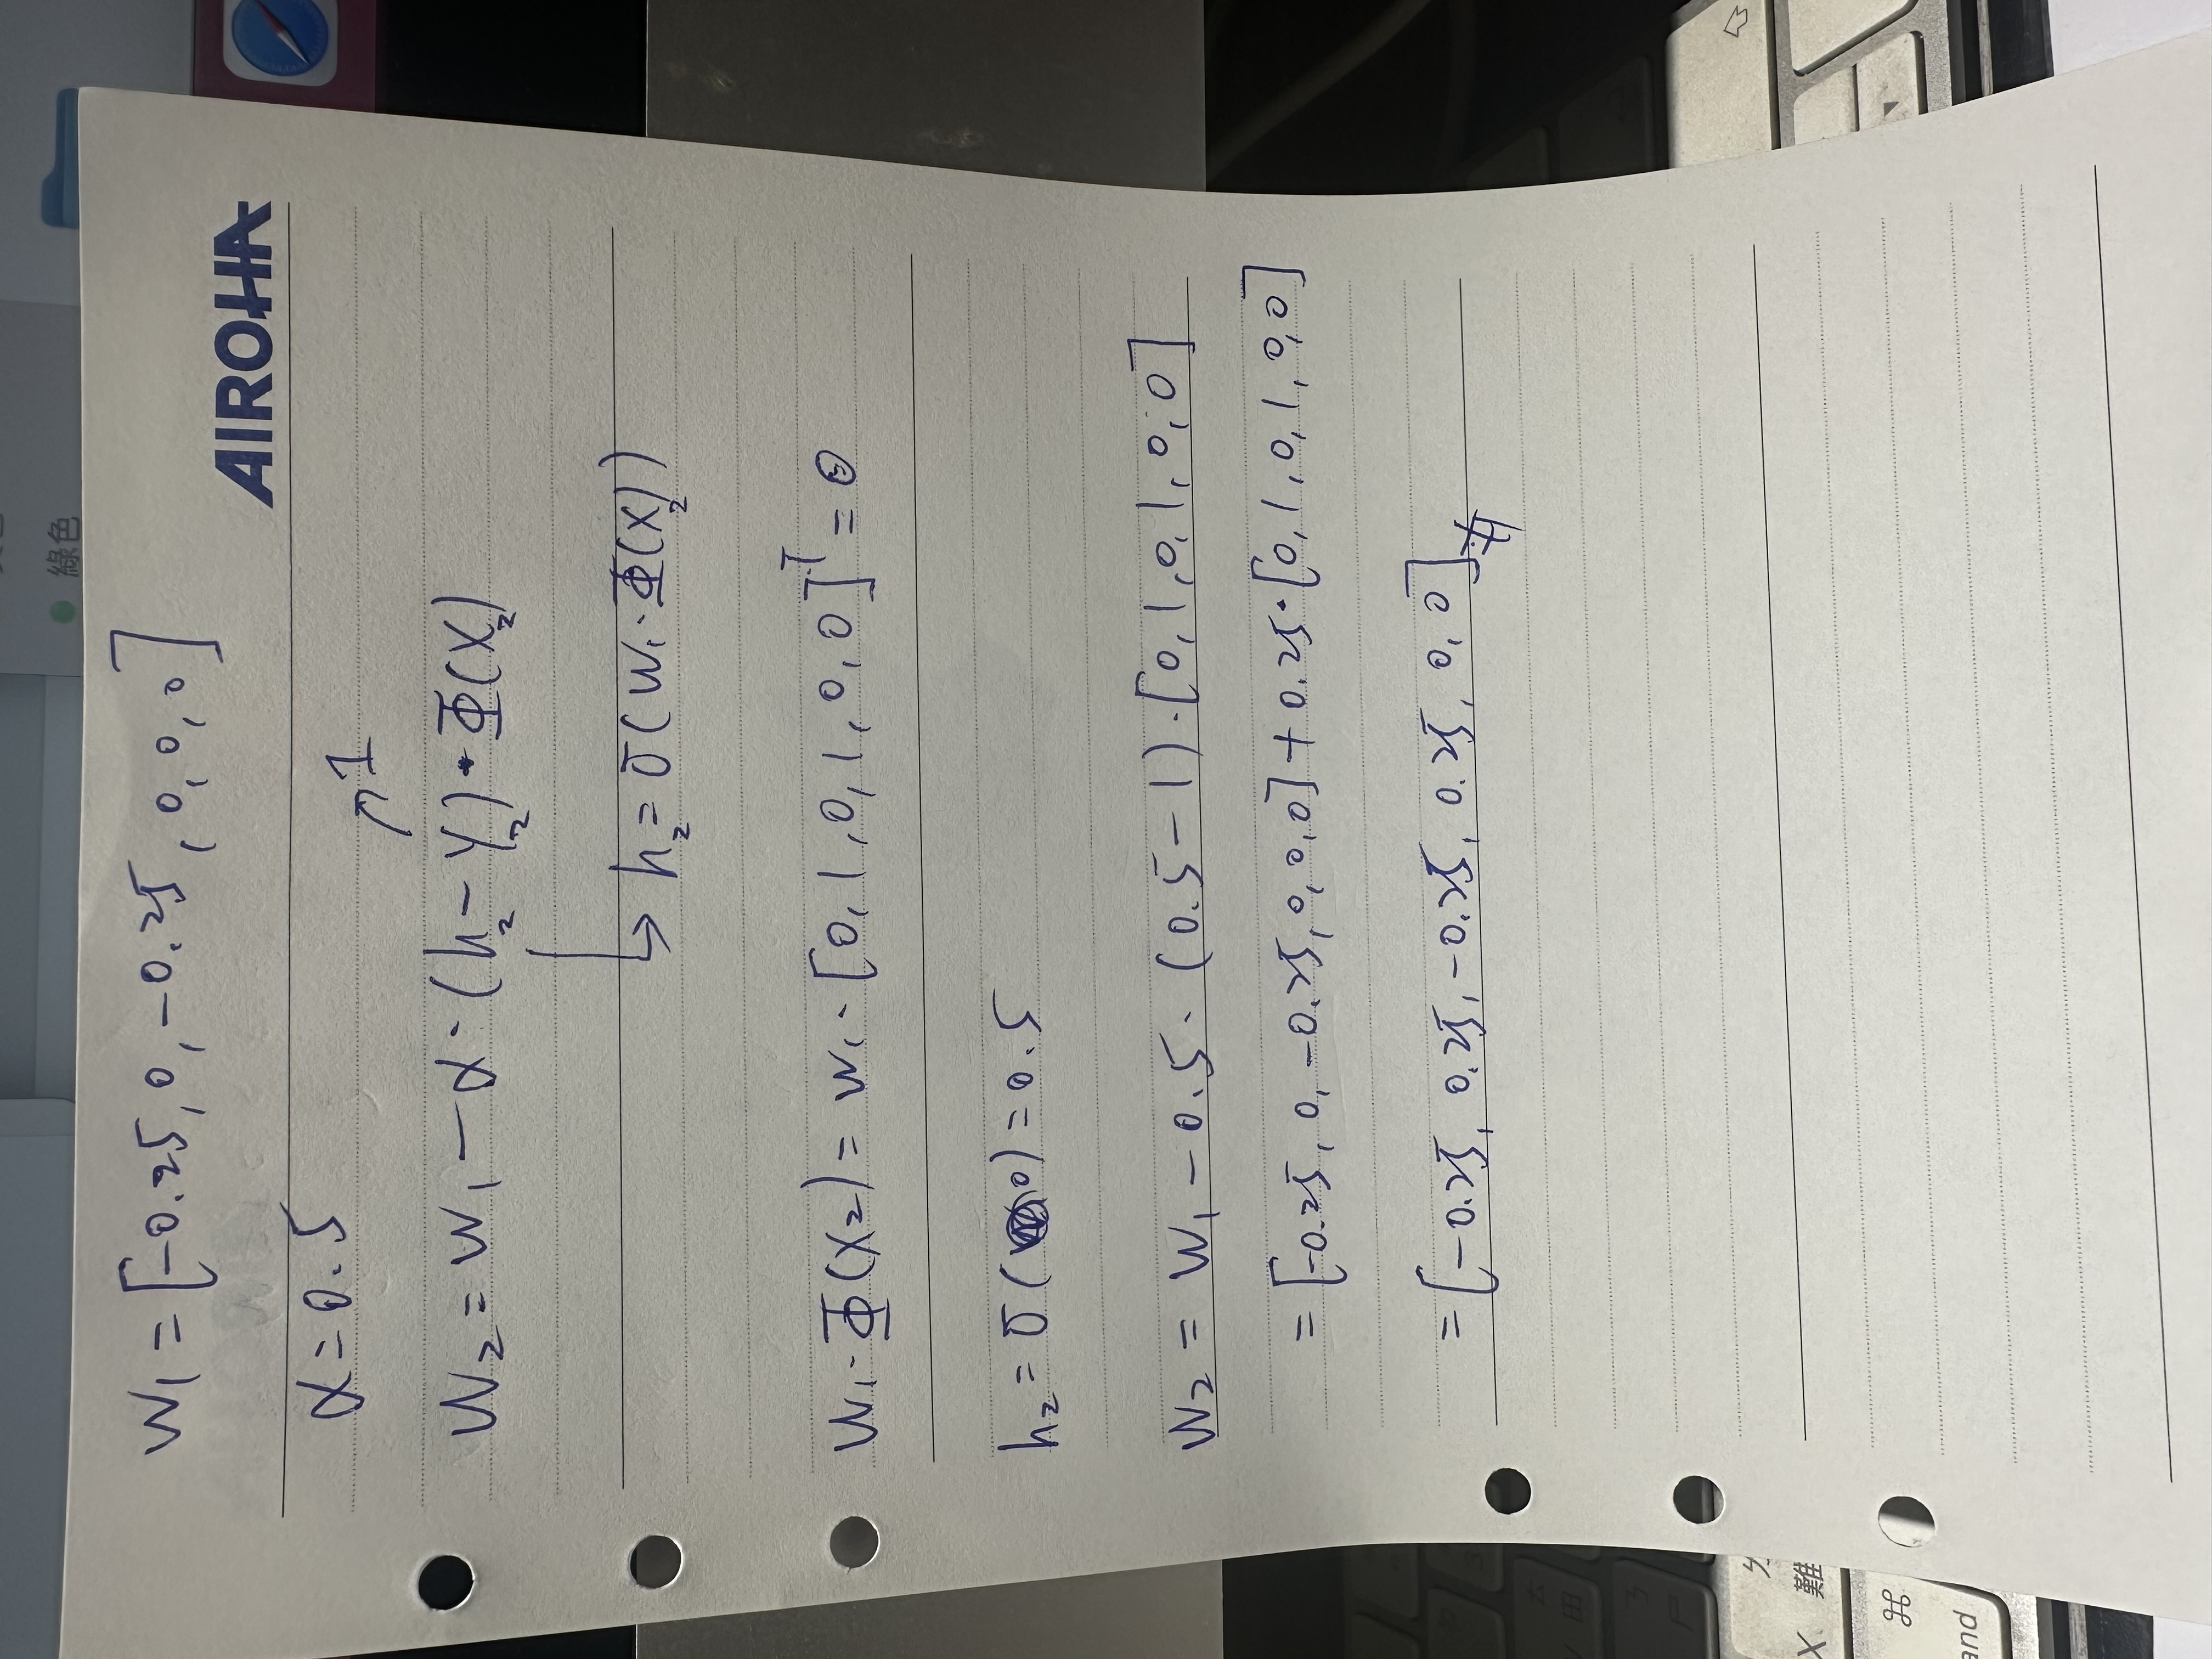 綠色
W₁ = [-0.25, 0, -0.25, 0, 0, 0]
AIROHA
α = 0.5
1
W₂ = W₁ - α · (h₂ - y₂) · Φ(X₂)
h₂ = σ(W₁ · Φ(X₂))
W₁ · Φ(X₂) = W₁ · [0, 1, 0, 1, 0, 0]ᵀ = 0
h₂ = σ(0) = 0.5
W₂ = W₁ - 0.5 · (0.5 - 1) · [0, 1, 0, 1, 0, 0]
= [-0.25, 0, -0.25, 0, 0, 0] + 0.25 · [0, 1, 0, 1, 0, 0]
= [-0.25, 0.25, -0.25, 0.25, 0, 0] #
X 難
⌘
and